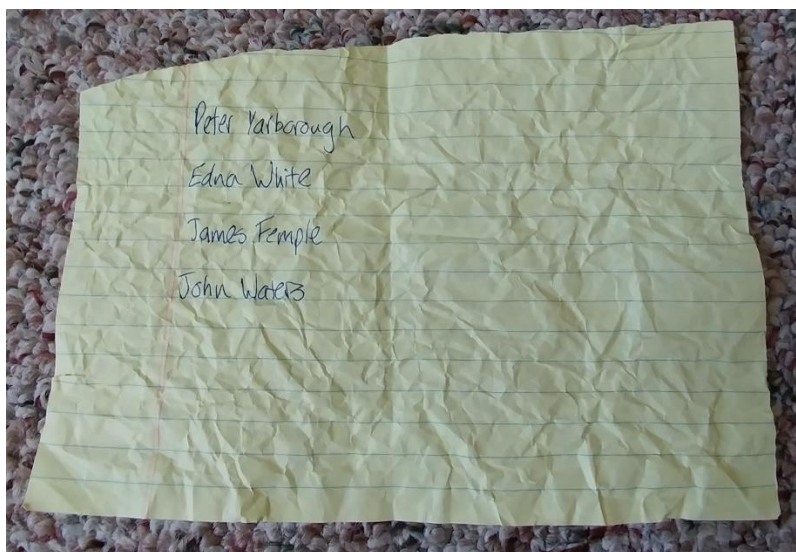 Peter Yarborough
Edna White
James Femple
John Waters